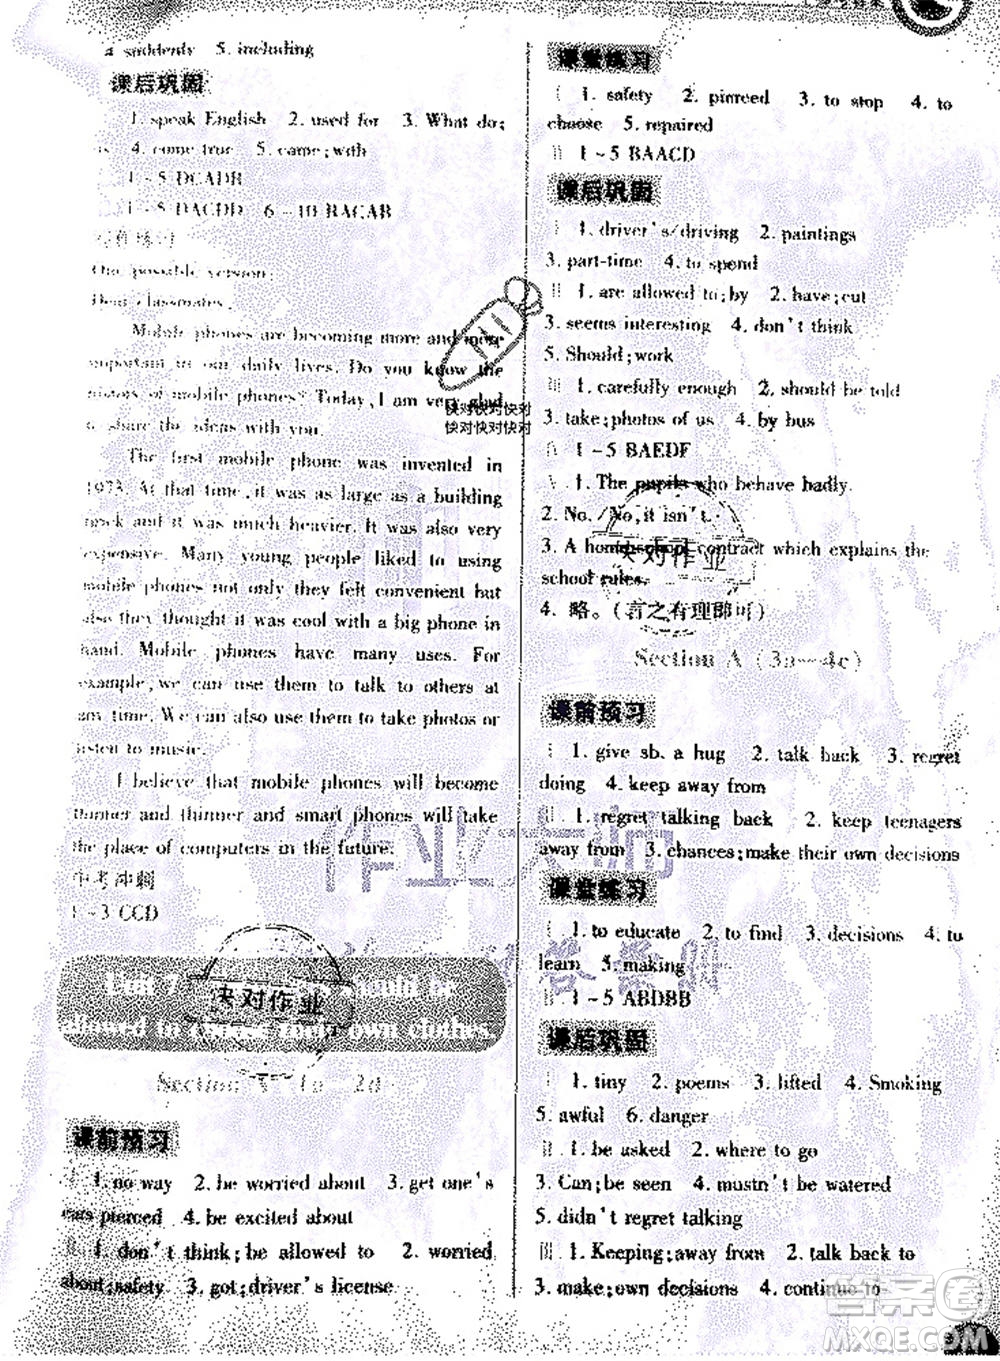 4. suddenly 5. including
课后巩固
1. speak English 2. used for 3. What do;
4. come true 5. came;with
1~5 DCADB
1~5 DACDD 6~10 BACAB
写作练习
One possible version:
Dear classmates,
Mobile phones are becoming more and more
important in our daily lives. Do you know the
history of mobile phones? Today, I am very glad
to share the ideas with you.
The first mobile phone was invented in
1973. At that time, it was as large as a building
and it was much heavier. It was also very
expensive. Many young people liked to using
mobile phones not only they felt convenient but
also they thought it was cool with a big phone in
hand. Mobile phones have many uses. For
example, we can use them to talk to others at
any time. We can also use them to take photos or
listen to music.
I believe that mobile phones will become
thinner and thinner and smart phones will take
the place of computers in the future.
中考冲刺
1~3 CCD
Unit 7 should be
allowed to choose their own clothes.
Section A 1a—2d
课前预习
1. no way 2. be worried about 3. get one's
ears pierced 4. be excited about
1. don't think;be allowed to 2. worried
about;safety 3. got;driver's license
课堂练习
Ⅰ 1. safety 2. pierced 3. to stop 4. to
choose 5. repaired
Ⅱ 1~5 BAACD
课后巩固
1. driver's/driving 2. paintings
3. part-time 4. to spend
Ⅱ 1. are allowed to;by 2. have;cut
3. seems interesting 4. don't think
5. Should;work
Ⅲ 1. carefully enough 2. should be told
3. take;photos of us 4. by bus
Ⅳ 1~5 BAEDF
Ⅴ 1. The pupils who behave badly.
2. No. /No, it isn't.
3. A home-school contract which explains the
school rules.
4. 略。(言之有理即可)
Section A (3a—4c)
课前预习
Ⅰ 1. give sb. a hug 2. talk back 3. regret
doing 4. keep away from
Ⅱ 1. regret talking back 2. keep teenagers
away from 3. chances;make their own decisions
课堂练习
Ⅰ 1. to educate 2. to find 3. decisions 4. to
learn 5. making
Ⅱ 1~5 ABDBB
课后巩固
Ⅰ 1. tiny 2. poems 3. lifted 4. Smoking
5. awful 6. danger
Ⅱ 1. be asked 2. where to go
3. Can;be seen 4. mustn't be watered
5. didn't regret talking
Ⅲ 1. Keeping;away from 2. talk back to
3. make;own decisions 4. continue to
快对快对快对
快对快对快对
快对作业
快对作业
作业大师
答案圈
MXQE.COM